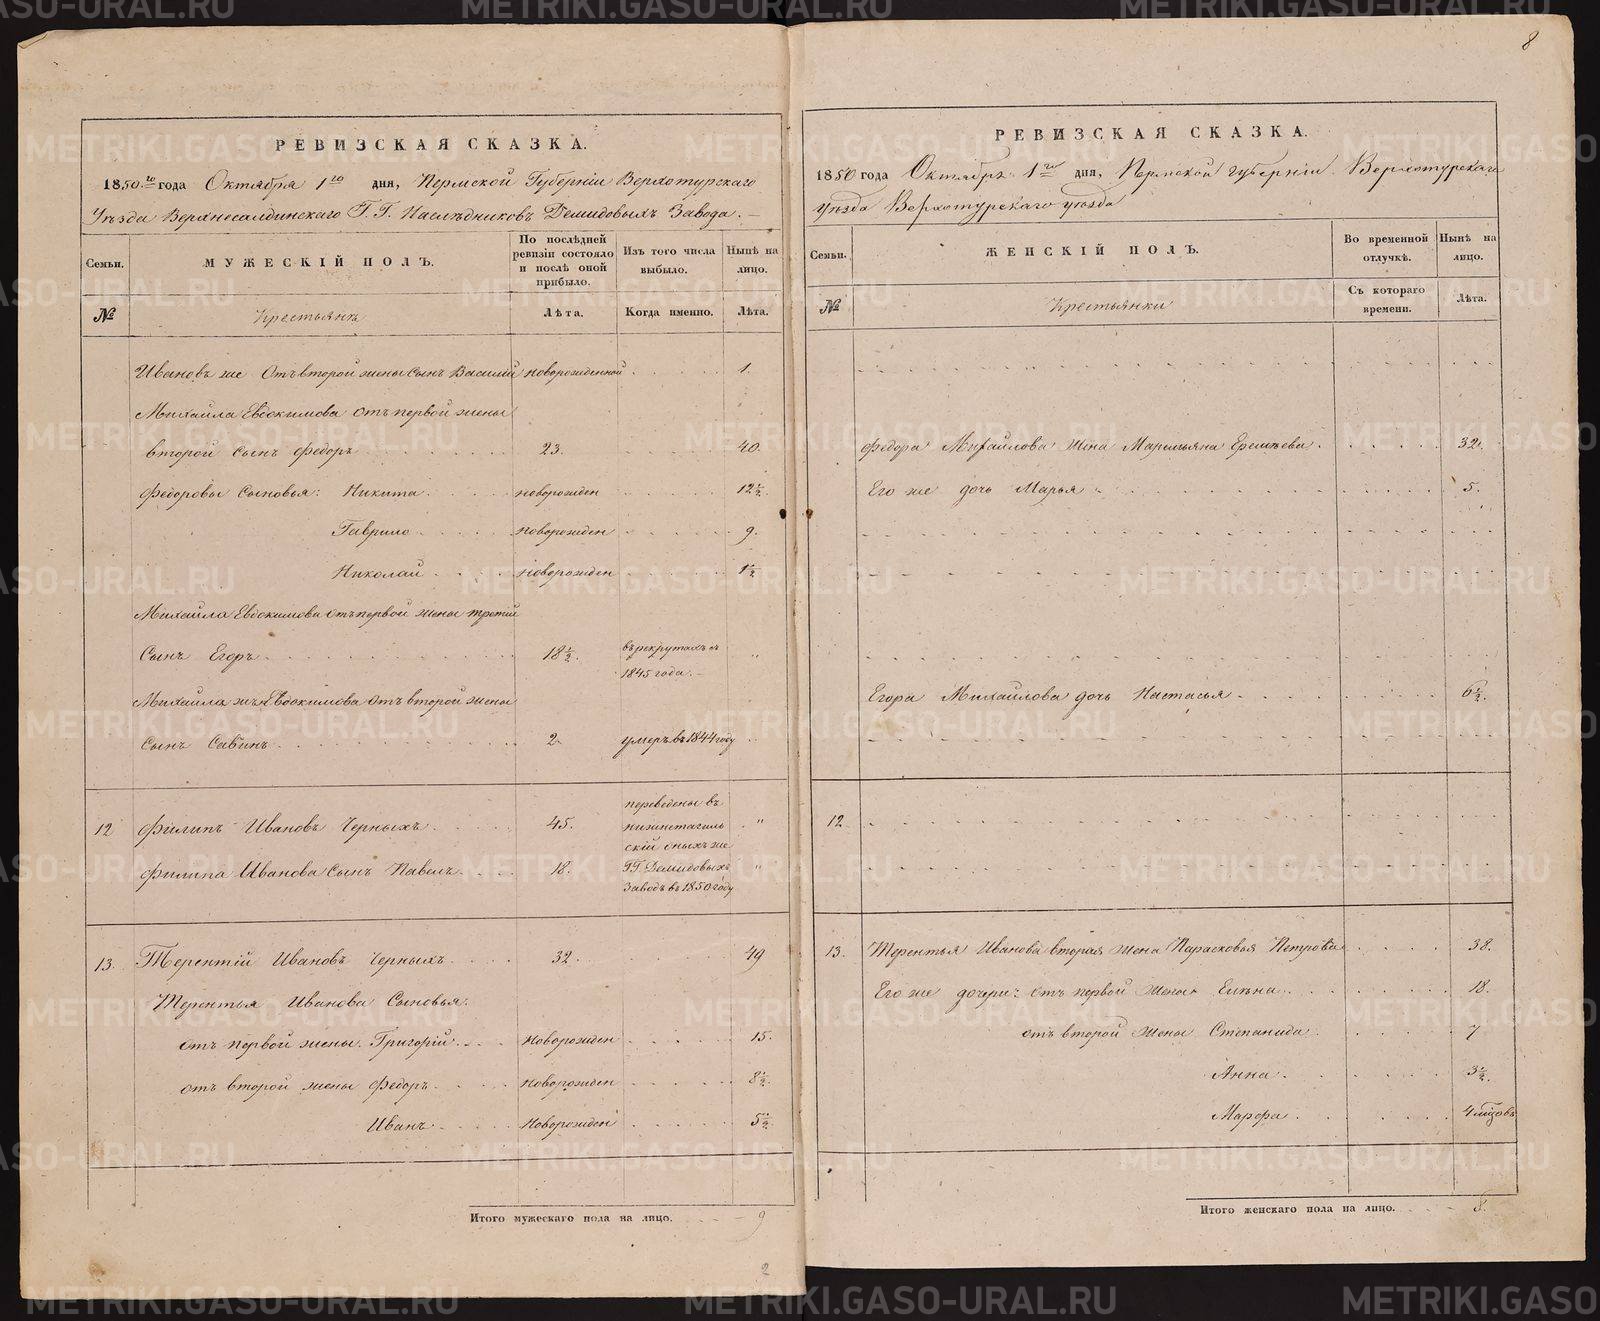 8
РЕВИЗСКАЯ СКАЗКА.
1850.го года Октября 1го дня, Пермской Губернiи Верхотурскаго
Уѣзда Верхнесалдинскаго Г. Г. Наслѣдниковъ Демидовыхъ Завода. —
Семьи.
МУЖЕСКІЙ ПОЛЪ.
По послѣдней ревизіи состояло и послѣ оной прибыло.
Изъ того числа выбыло.
Нынѣ на лицо.
№
Крестьянъ
Лѣта.
Когда именно.
Лѣта.
Ивановъ же Отъ второй жены сынъ Василій новорожденной 1.
Михаила Евдокимова отъ первой жены
второй сынъ Федоръ 23. 40.
Федоровы Сыновья: Никита новорожден 12½.
Гаврило новорожден 9.
Николай новорожден 1½
Михаила Евдокимова отъ первой жены третій
Сынъ Егоръ 18½. въ рекрутахъ съ 1845 года. — "
Михаила жъ Евдокимова Отъ второй жены
Сынъ Савинъ 2. умеръ въ 1844 году
12 Филипъ Ивановъ Черныхъ 45. переведены въ нижнетагильскій оныхъ же "
Филипа Иванова Сынъ Павелъ 18. ГГ. Демидовыхъ Заводъ въ 1850 году "
13. Терентій Ивановъ Черныхъ 32. 49
Терентья Иванова Сыновья:
отъ первой жены. Григорій Новорожден 15.
отъ второй жены Федоръ новорожден 8½.
Иванъ Новорожден 5½.
Итого мужескаго пола на лицо. 9
2
РЕВИЗСКАЯ СКАЗКА.
1850 года Октября 1го дня, Пермской губерніи Верхотурскаго
уѣзда Верхотурскаго уѣзда
Семьи.
ЖЕНСКІЙ ПОЛЪ.
Во временной отлучкѣ.
Нынѣ на лицо.
№
Крестьянки
Съ котораго времени.
Лѣта.
Федора Михайлова жена Марьяна 32.
Его же дочь Марья 5.
Егора Михайлова дочь Настасья 6½.
12
13. Терентья Иванова вторая жена Парасковья Петрова 38.
Его же дочери: отъ первой жены Елена 18.
отъ второй жены Степанида 7
Анна 3½.
Марфа 4 мѣсяцовъ
Итого женскаго пола на лицо. 8.
METRIKI.GASO-URAL.RU